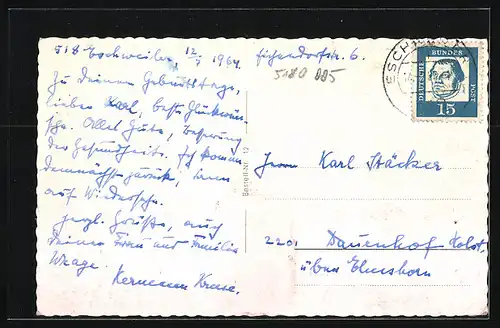 518 Eschweiler, 12/7 1964. Eichendorfstr. 6.
Zu Deinem Geburtstage,
lieber Karl, beste Glückwün-
sche. Alles Gute, Besserung
der Gesundheit. Ich komme
demnächst zurück, denn
auf Wiedersehn.
Herzl. Grüße, auch
Deiner Frau und Familie
Hermann Kruse.
5180 005
ESCHWEILER
DEUTSCHE BUNDESPOST
15
Bestell-Nr. 12
Herrn Karl Stäcker
2201 Dauenhof Holst.
über Elmshorn